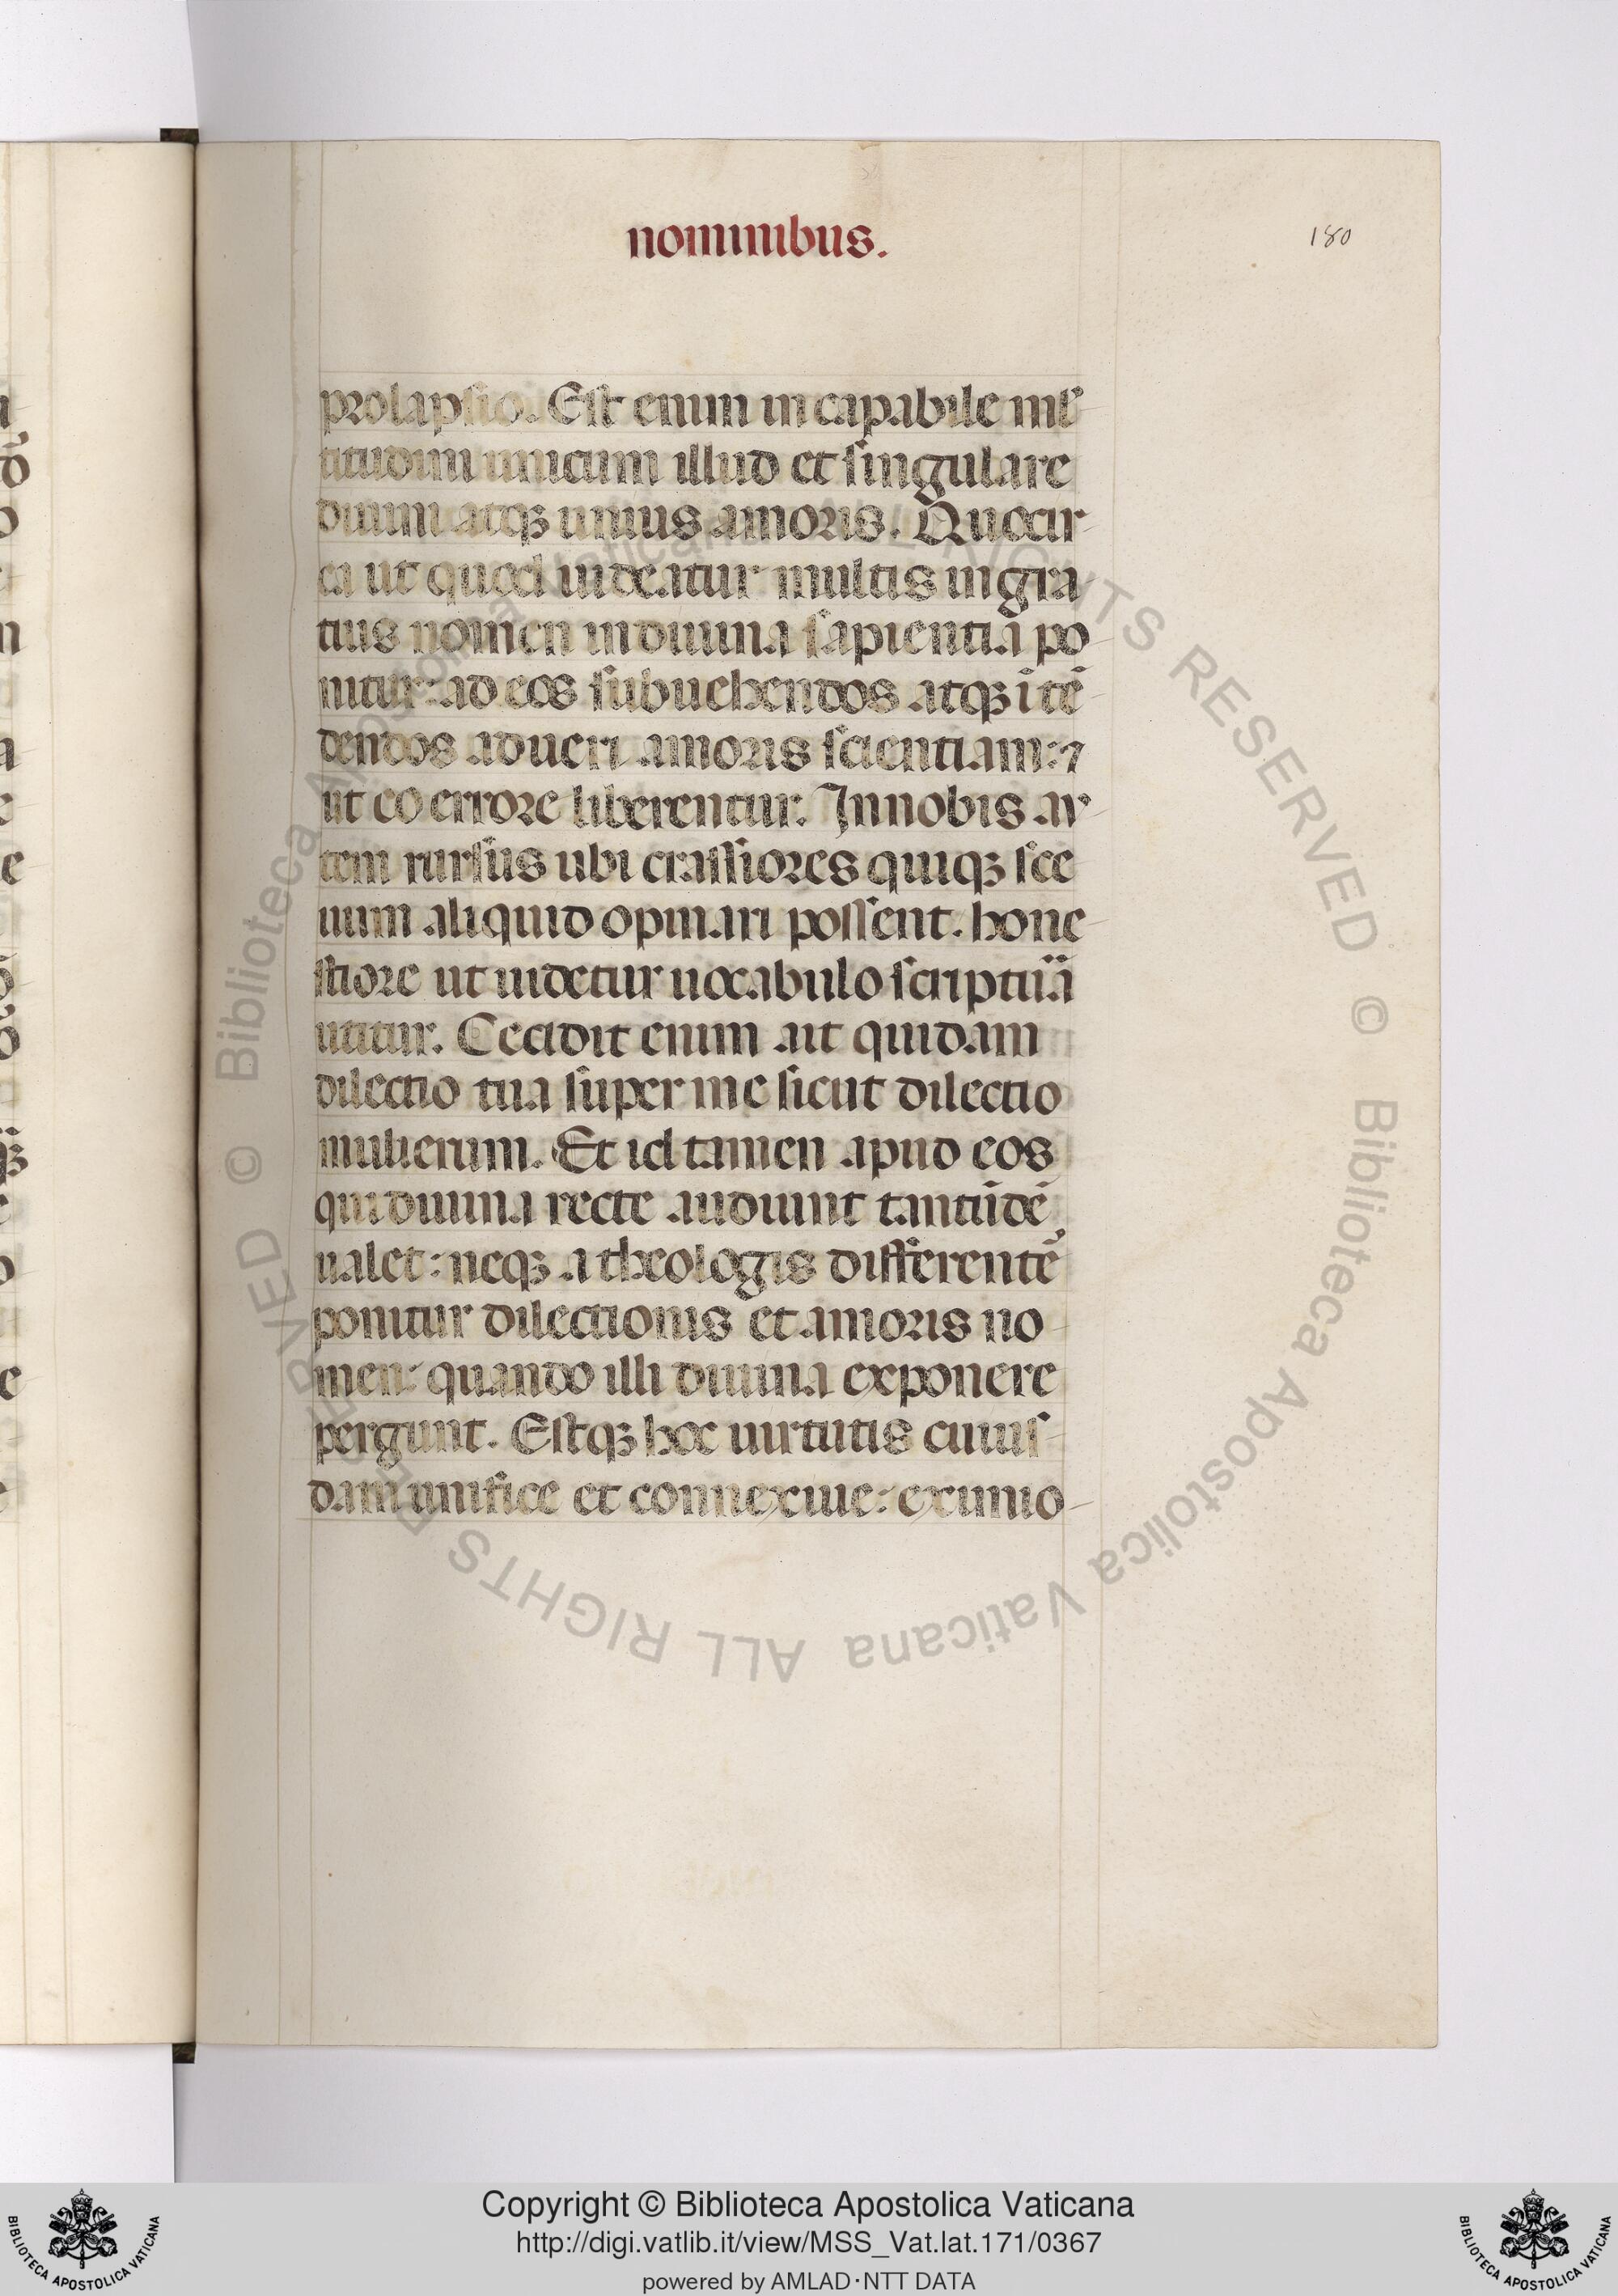 nominibus.
180
prolapsio. Est enim incapabile ml̅
titudini unicum illud et singulare
diuini atqꝫ unius amoris. Quocir
ca ut quod uideatur multis ingra
tius nomen in diuina sapientia po
nitur: ad eos subuehendos atqꝫ ītē
dendos ad ueri amoris scientiam: ⁊
ut eo errore liberentur. In nobis au
tem rursus ubi crassiores quiqꝫ sce
uum aliquid opinari possent. hone
stiore ut uidetur uocabulo scriptũa
utitur. Cecidit enim ait quidam
dilectio tua super me sicut dilectio
mulierum. Et id tamen apud eos
qui diuina recte audiunt tantūdē
ualet: neqꝫ a theologis differentē
ponitur dilectionis et amoris no
men: quando illi diuina exponere
pergunt. Estqꝫ hoc uirtutis cuius
dam unifice et connexiue: eximio
Copyright © Biblioteca Apostolica Vaticana
http://digi.vatlib.it/view/MSS_Vat.lat.171/0367
powered by AMLAD·NTT DATA
BIBLIOTECA APOSTOLICA VATICANA
BIBLIOTECA APOSTOLICA VATICANA
© Biblioteca Apostolica Vaticana ALL RIGHTS RESERVED
© Biblioteca Apostolica Vaticana ALL RIGHTS RESERVED